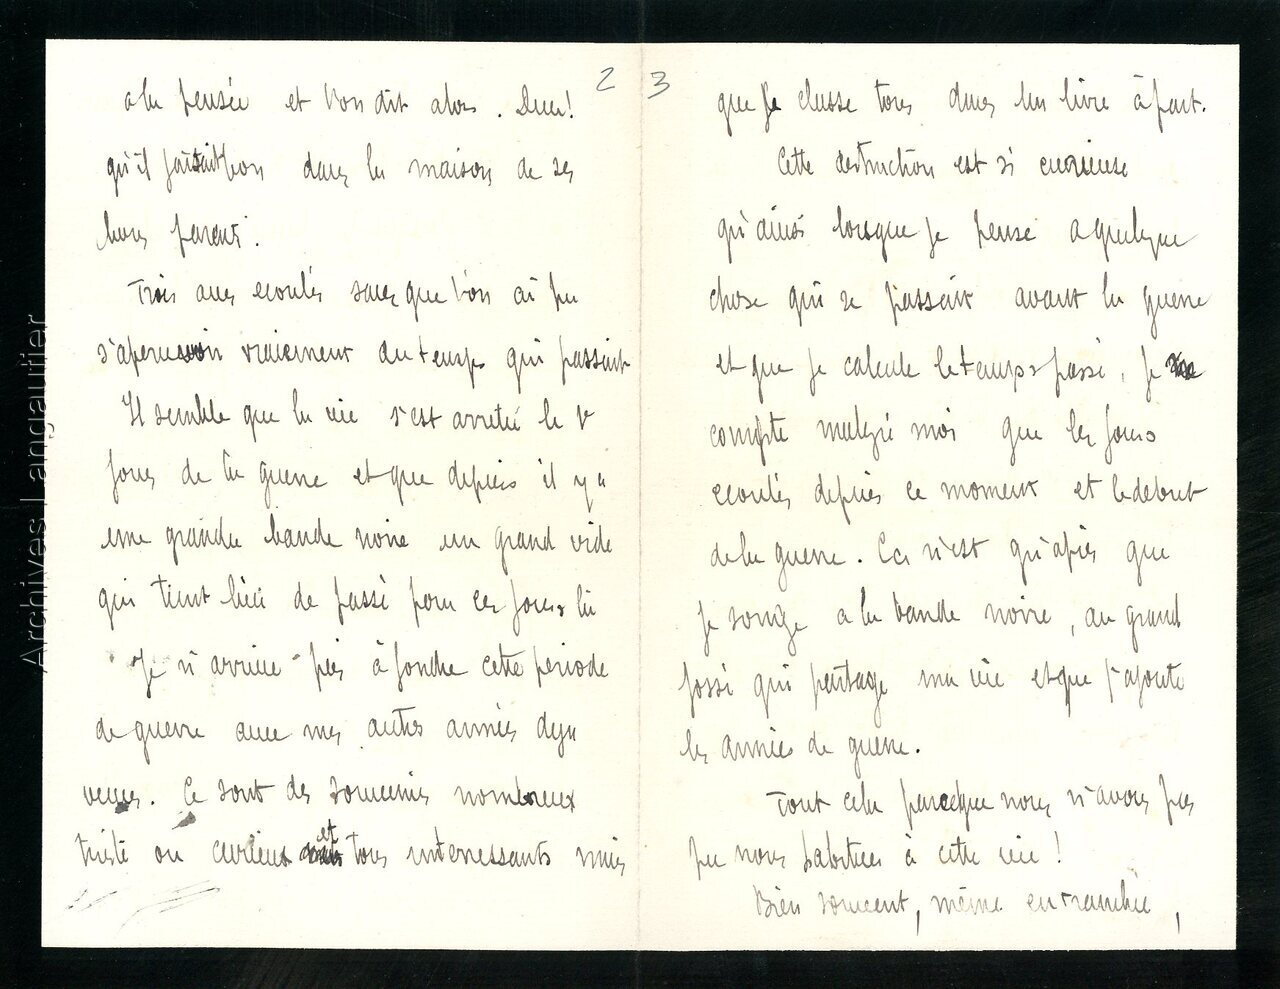 2
a la pensée et l'on dit alors. Dieu!
qu'il faisait bon dans la maison de ses
bons parents.
Trois ans ecoulés sans que l'on ai pu
s'apercevoir vraiement du temps qui passait
Il semble que la vie s'est arretée le 1r
jour de la guerre et que depuis il y a
une grande bande noire un grand vide
qui tient lieu de passé pour ces jours la
Je n'arrive pas à fondre cette periode
de guerre avec mes autres années deja
vecues. Ce sont des souvenirs nombreux
triste ou curieux et tous interressants mais
3
que je classe tous dans un livre à part.
Cette destruction est si curieuse
qu'ainsi lorsque je pense a quelque
chose qui se passait avant la guerre
et que je calcule le temps passé, je
compte malgré moi que les jours
ecoulés depuis ce moment et le debut
de la guerre. Ce n'est qu'après que
je songe a la bande noire, au grand
fossé qui partage ma vie et que j'ajoute
les années de guerre.
Tout cela parceque nous n'avons pas
pu nous habituer à cette vie!
Bien souvent, même en tranchée,
Archives Langautier